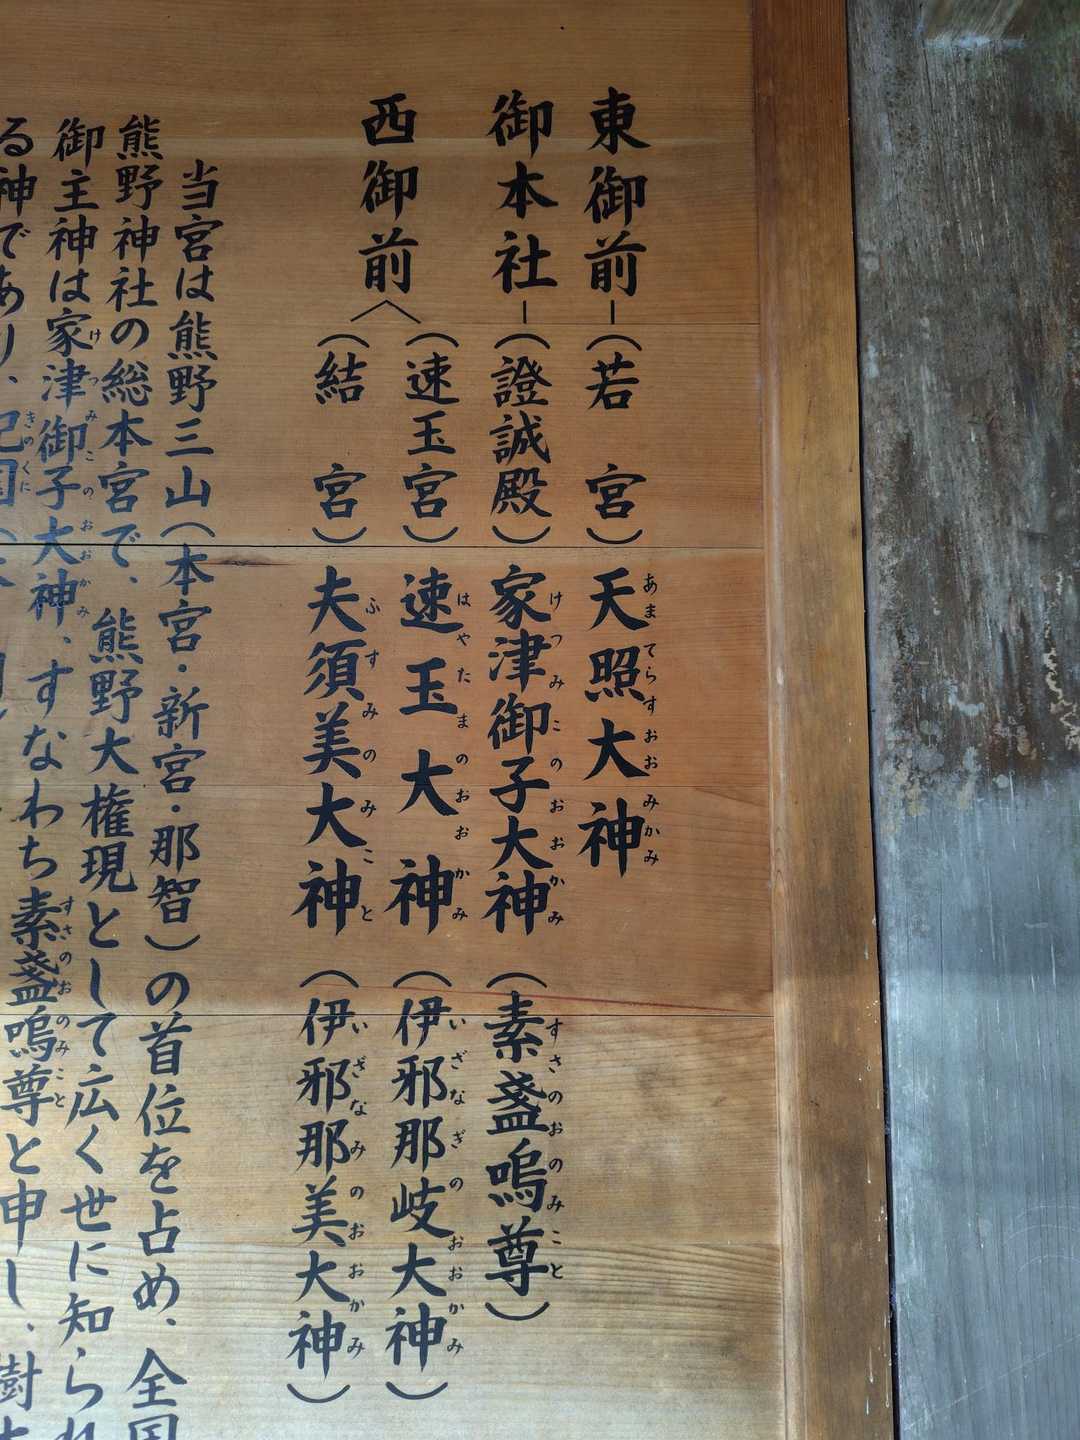 東御前―(若宮)天照大神あまてらすおおみかみ
御本社―(證誠殿)家津御子大神けつみこのおおかみ(素盞嗚尊すさのおのみこと)
西御前
(速玉宮)速玉大神はやたまのおおかみ(伊邪那岐大神いざなぎのおおかみ)
(結宮)夫須美大神ふすみのみこと(伊邪那美大神いざなみのおおかみ)
当宮は熊野三山(本宮・新宮・那智)の首位を占め、全国
熊野神社の総本宮で、熊野大権現として広く世に知られ
御主神は家津御子大神けつみこのおおかみ、すなわち素盞嗚尊すさのおのみことと申し、樹
る神であり、紀国きのくに(